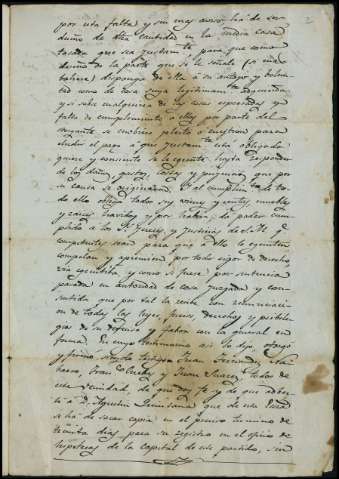 por esta falta, y sin mas aviso ha de ser
dueño de otra cantidad en la media casa
tasada que sea justamte. para que como
de la parte que se le señale
disponga de ella á su antojo y volun-
tad como de cosa suya legitimamte. adquirida
y si sobre cualquiera de las cosas espresadas y
falta de cumplimiento á ellas por parte del
otorgante se moviere pleito ó cuestion para
eludir el pago á que justamte. esta obligado
quiere y consiente se le ejecute hasta responder
de los daños, gastos, costas y perjuicios que por
su causa se originaren. Y al cumplimto. de to-
do ello obliga todos sus vienes y rentas, muebles
y raices havidos y por haber; da poder cum-
plido á los SS. Jueces y Justicias de S. M. q.
competentes sean para que á ello le ejecuten
compelan y apremien por todo rigor de derecho
via ejecutiva y como si fuera por sentencia
pasada en autoridad de cosa juzgada y con-
sentida que por tal la recibe con renunciacion
de todas las leyes, fueros, derechos y privile-
gios de su defensa y favor con la general en
forma. En cuyo testimonio así lo dijo, otorgó
y firmó siendo testigos Juan
Juan y Juan Suarez, todos de
esta vecindad, de que doy fe y de que adver-
tí á D. Agustin Quintana que de esta Escra.
se há de sacar copia en el preciso termino de
treinta dias para su registro en el oficio de
hipotecas de la capital de este partido, sin